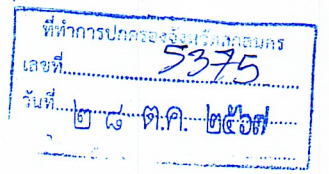 ที่ทำการปกครองจังหวัดสกลนคร
เลขที่ 5375
วันที่ ๒๘ ต.ค. ๒๕๖๗